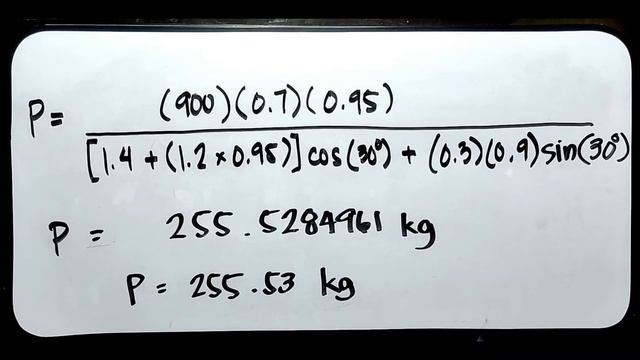 P = (900)(0.7)(0.95)
[1.4 + (1.2 x 0.95)] cos(30°) + (0.3)(0.9) sin(30°)
P = 255.5284961 kg
P = 255.53 kg